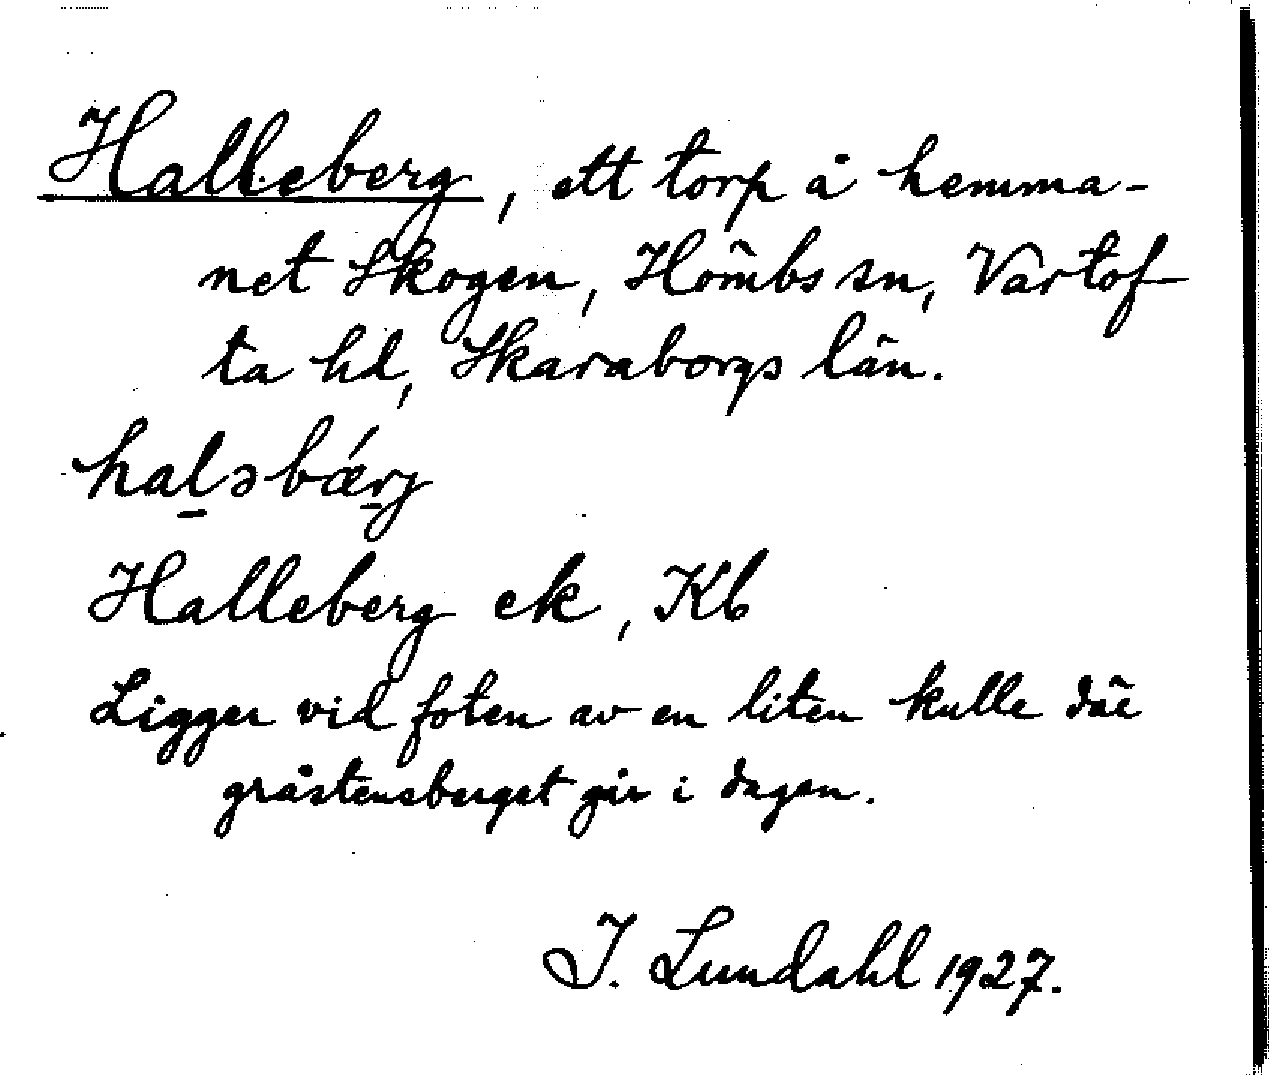 Halleberg, ett torp å hemma-
net Skogen, Hömbs sn, Vartof
ta hd, Skaraborgs län.
haləbǽrj
Halleberg ek, Kb
Ligger vid foten av en liten kulle där
gråstensberget går i dagen.
J. Lundahl 1927.